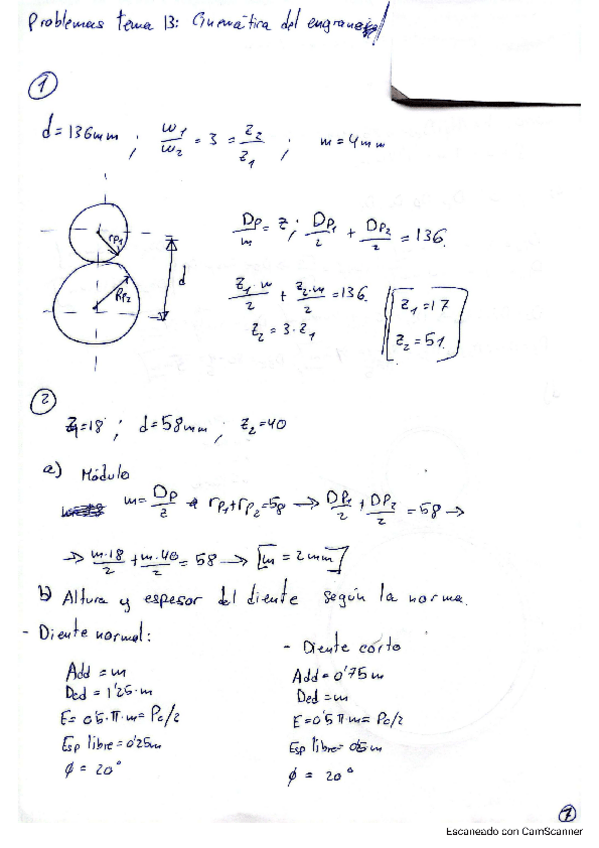 Problemas tema 13: Cinemática del engranaje
1
d=136mm ; w1/w2 = 3 = z2/z1 ; m=4mm
Dp/m = z ; Dp1/2 + Dp2/2 = 136.
rp1
d
Rp2
z1·m/2 + z2·m/2 = 136.
z2 = 3·z1
z1=17
z2=51.
2
z1=18 ; d=58mm ; z2=40
a) Módulo
m= Dp/z rp1+rp2=58 → DP1/2 + DP2/2 = 58 →
→ m·18/2 + m·40/2 = 58 → [m = 2mm]
b) Altura y espesor del diente según la norma.
- Diente normal:
Add = m
Ded = 1'25·m
E= 0'5·π·m= Pc/2
Esp libre=0'25m
φ = 20°
- Diente corto
Add= 0'75m
Ded=m
E=0'5πm= Pc/2
Esp libre= 0'5m
φ = 20°
7
Escaneado con CamScanner